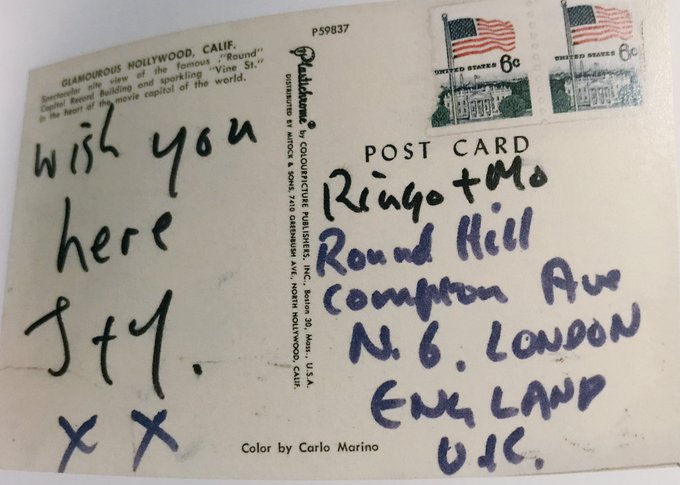 GLAMOUROUS HOLLYWOOD, CALIF.
Spectacular nite view of the famous "Round"
Capitol Record Building and sparkling "Vine St."
in the heart of the movie capitol of the world.
wish you
here
J+Y.
x x
P59837
Plastichrome® by COLOURPICTURE PUBLISHERS, INC., Boston 30, Mass., U.S.A.
DISTRIBUTED BY MITOCK & SONS, 7410 GREENBUSH AVE., NORTH HOLLYWOOD, CALIF.
UNITED STATES 6c
UNITED STATES 6c
POST CARD
Ringo + Mo
Round Hill
Compton Ave
N.6. LONDON
ENGLAND
U.K.
Color by Carlo Marino